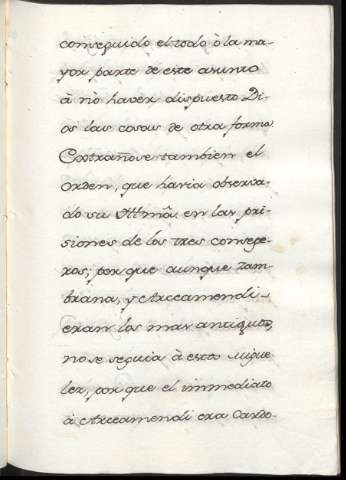 conseguido el todo ò la ma-
yor parte de este asunto
à no haver dispuesto Di-
os las cosas de otra forma
Extrañose tambien el
orden, que havia observa-
do su Illmâ. en las pri-
siones de los tres consege-
ros; por que aunque Zam-
brana, y Arreamendi-
eran los mas antiguos,
no se seguia à estos Migue-
lez, por que el immediato
à Arreamendi era Cardo-